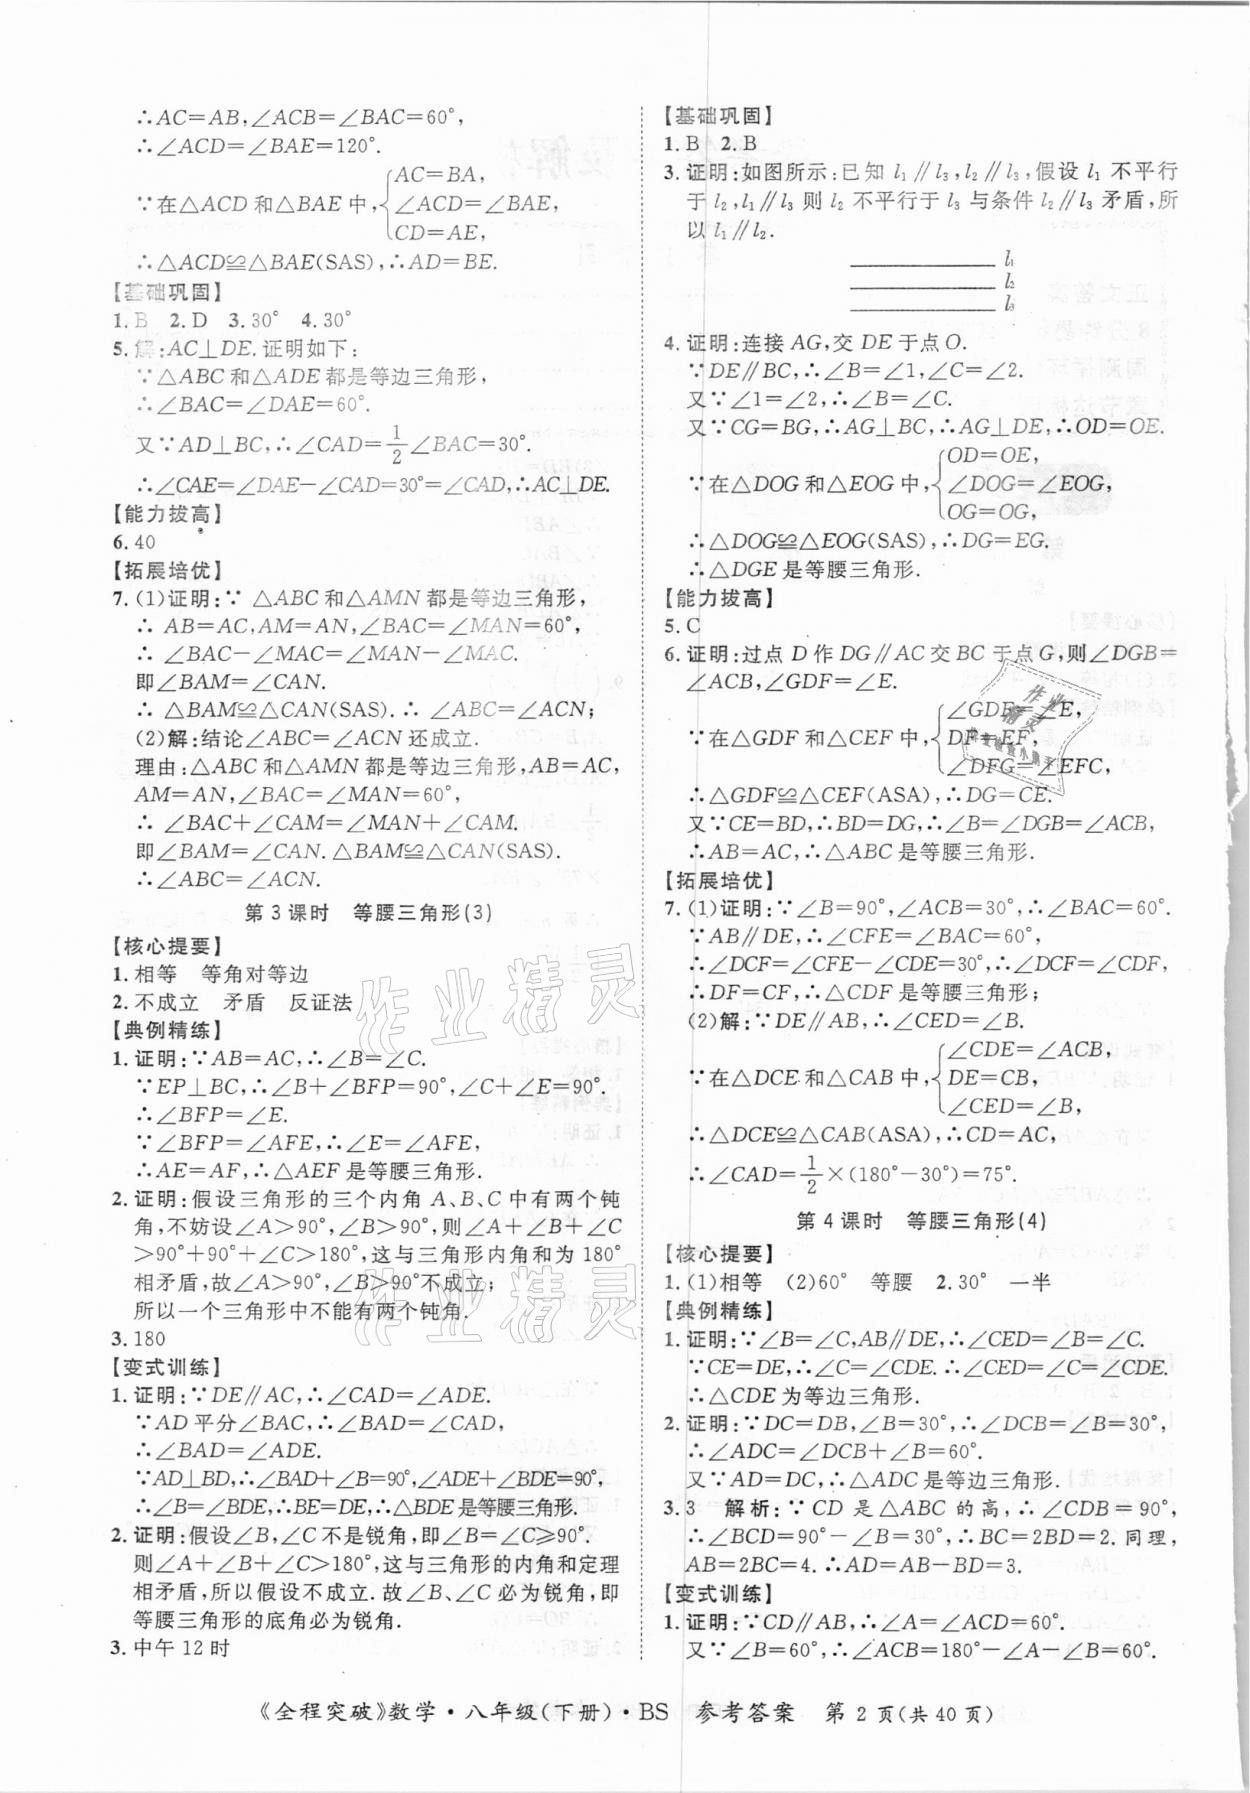 ∴AC=AB,∠ACB=∠BAC=60°,
∴∠ACD=∠BAE=120°.
AC=BA,
∵在△ACD 和△BAE 中,{∠ACD=∠BAE,
CD=AE,
∴△ACD≌△BAE(SAS),∴AD=BE.
【基础巩固】
1.B 2.D 3.30° 4.30°
5.解:AC⊥DE.证明如下:
∵△ABC 和△ADE 都是等边三角形,
∴∠BAC=∠DAE=60°.
又∵AD⊥BC,∴∠CAD=1/2∠BAC=30°.
∴∠CAE=∠DAE-∠CAD=30°=∠CAD,∴AC⊥DE.
【能力拔高】
6.40
【拓展培优】
7.(1)证明:∵ △ABC 和△AMN 都是等边三角形,
∴ AB=AC,AM=AN,∠BAC=∠MAN=60°,
∴ ∠BAC-∠MAC=∠MAN-∠MAC.
即∠BAM=∠CAN.
∴ △BAM≌△CAN(SAS).∴ ∠ABC=∠ACN;
(2)解:结论∠ABC=∠ACN 还成立.
理由:△ABC 和△AMN 都是等边三角形,AB=AC,
AM=AN,∠BAC=∠MAN=60°,
∴ ∠BAC+∠CAM=∠MAN+∠CAM.
即∠BAM=∠CAN.△BAM≌△CAN(SAS).
∴ ∠ABC=∠ACN.
第 3 课时 等腰三角形(3)
【核心提要】
1.相等 等角对等边
2.不成立 矛盾 反证法
【典例精练】
1.证明:∵AB=AC,∴∠B=∠C.
∵EP⊥BC,∴∠B+∠BFP=90°,∠C+∠E=90°.
∴∠BFP=∠E.
∵∠BFP=∠AFE,∴∠E=∠AFE,
∴AE=AF,∴△AEF 是等腰三角形.
2.证明:假设三角形的三个内角 A、B、C 中有两个钝
角,不妨设∠A>90°,∠B>90°,则∠A+∠B+∠C
>90°+90°+∠C>180°,这与三角形内角和为 180°
相矛盾,故∠A>90°,∠B>90°不成立;
所以一个三角形中不能有两个钝角.
3.180
【变式训练】
1.证明:∵DE∥AC,∴∠CAD=∠ADE.
∵AD 平分∠BAC,∴∠BAD=∠CAD.
∴∠BAD=∠ADE.
∵AD⊥BD,∴∠BAD+∠B=90°,∠ADE+∠BDE=90°.
∴∠B=∠BDE,∴BE=DE,∴△BDE是等腰三角形.
2.证明:假设∠B,∠C 不是锐角,即∠B=∠C⩾90°.
则∠A+∠B+∠C>180°,这与三角形的内角和定理
相矛盾,所以假设不成立.故∠B、∠C 必为锐角,即
等腰三角形的底角必为锐角.
3.中午 12 时
【基础巩固】
1.B 2.B
3.证明:如图所示:已知 l₁∥l₃,l₂∥l₃,假设 l₁ 不平行
于 l₂,l₁∥l₃ 则 l₂ 不平行于 l₃ 与条件 l₂∥l₃ 矛盾,所
以 l₁∥l₂.
l₁
l₂
l₃
4.证明:连接 AG,交 DE 于点 O.
∵DE∥BC,∴∠B=∠1,∠C=∠2.
又∵∠1=∠2,∴∠B=∠C.
又∵CG=BG,∴AG⊥BC,∴AG⊥DE,∴OD=OE.
OD=OE,
在△DOG 和△EOG 中,{∠DOG=∠EOG,
OG=OG,
∴△DOG≌△EOG(SAS),∴DG=EG.
∴△DGE 是等腰三角形.
【能力拔高】
5.C
6.证明:过点 D 作 DG∥AC 交 BC 于点 G,则∠DGB=
∠ACB,∠GDF=∠E.
∠GDE=∠E,
∵在△GDF 和△CEF 中,{DF=EF,
∠DFG=∠EFC,
∴△GDF≌△CEF(ASA),∴DG=CE.
又∵CE=BD,∴BD=DG,∴∠B=∠DGB=∠ACB,
∴AB=AC,∴△ABC 是等腰三角形.
【拓展培优】
7.(1)证明:∵∠B=90°,∠ACB=30°,∴∠BAC=60°.
∵AB∥DE,∴∠CFE=∠BAC=60°,
∴∠DCF=∠CFE-∠CDE=30°,∴∠DCF=∠CDF,
∴DF=CF,∴△CDF 是等腰三角形;
(2)解:∵DE∥AB,∴∠CED=∠B.
∠CDE=∠ACB,
∵在△DCE 和△CAB 中,{DE=CB,
∠CED=∠B,
∴△DCE≌△CAB(ASA),∴CD=AC,
∴∠CAD=1/2×(180°-30°)=75°.
第 4 课时 等腰三角形(4)
【核心提要】
1.(1)相等 (2)60° 等腰 2.30° 一半
【典例精练】
1.证明:∵∠B=∠C,AB∥DE,∴∠CED=∠B=∠C.
∵CE=DE,∴∠C=∠CDE.∴∠CED=∠C=∠CDE.
∴△CDE 为等边三角形.
2.证明:∵DC=DB,∠B=30°,∴∠DCB=∠B=30°,
∴∠ADC=∠DCB+∠B=60°.
又∵AD=DC,∴△ADC 是等边三角形.
3.3 解析:∵CD 是△ABC 的高,∴∠CDB=90°,
∴∠BCD=90°-∠B=30°,∴BC=2BD=2.同理,
AB=2BC=4.∴AD=AB-BD=3.
【变式训练】
1.证明:∵CD∥AB,∴∠A=∠ACD=60°.
又∵∠B=60°,∴∠ACB=180°-∠A-∠B=60°.
《全程突破》数学·八年级(下册)·BS 参考答案 第 2 页(共 40 页)
作业精灵
作业精灵
作业精灵